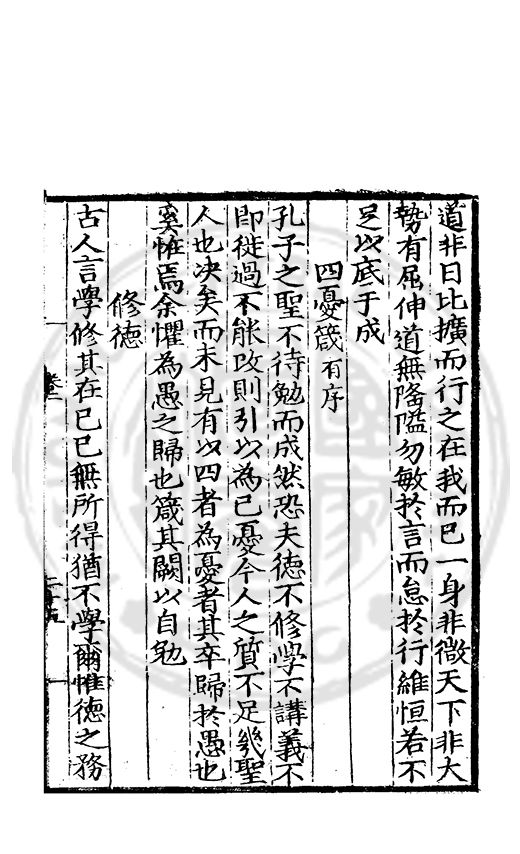 道非日比擴而行之在我而已一身非微天下非大
勢有屈伸道無隆隘勿敏於言而怠於行維恒若不
足以底于成
四憂箴有序
孔子之聖不待勉而成然恐夫德不修學不講義不
即徙過不能改則引以為已憂今人之質不足幾聖
人也决矣而未見有以四者為憂者其卒歸於愚也
奚惟焉余懼為愚之歸也箴其闕以自勉
修德
古人言學修其在已已無所得猶不學爾惟德之務